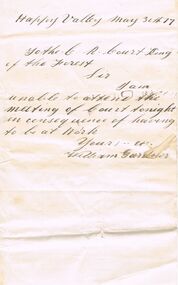 Happy Valley May 30th 17
To the C. R. Court King
of the Forest
Sir
I am
unable to attend the
meeting of Court tonight
in consequence of having
to be at Work
Yours
William Gardner